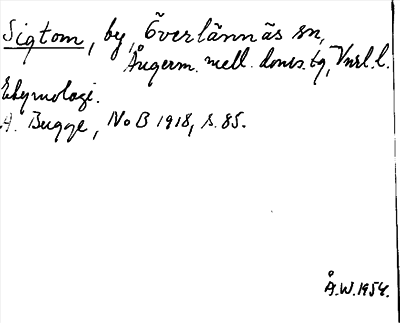 Sigtom, by, Överlännäs sn,
Ångerm. mell. doms. tg, Vnrl. l.
Etymologi.
A. Bugge, NoB 1918, s. 85.
Å.W. 1954.